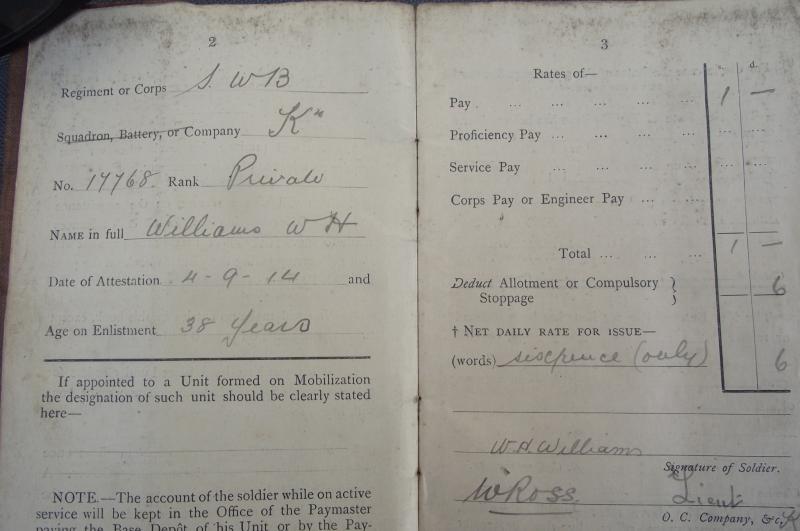 2
Regiment or Corps S. W B
Squadron, Battery, or Company K"
No. 17768. Rank Private
NAME in full Williams W H
Date of Attestation 4-9-14 and
Age on Enlistment 38 years
If appointed to a Unit formed on Mobilization
the designation of such unit should be clearly stated
here—
NOTE.—The account of the soldier while on active
service will be kept in the Office of the Paymaster
paying the Base Depôt of his Unit or by the Pay-
3
Rates of— s. d.
Pay . ... ... ... ... ... 1 —
Proficiency Pay ... ... ... ... ... ...
Service Pay ... ... ... ... ...
Corps Pay or Engineer Pay ... ...
Total ... ... ... 1 —
Deduct Allotment or Compulsory }
Stoppage } 6
† NET DAILY RATE FOR ISSUE—
(words) sixpence (only) 6
W.H. Williams
Signature of Soldier.
W Ross. Lieut
O. C. Company, &c.